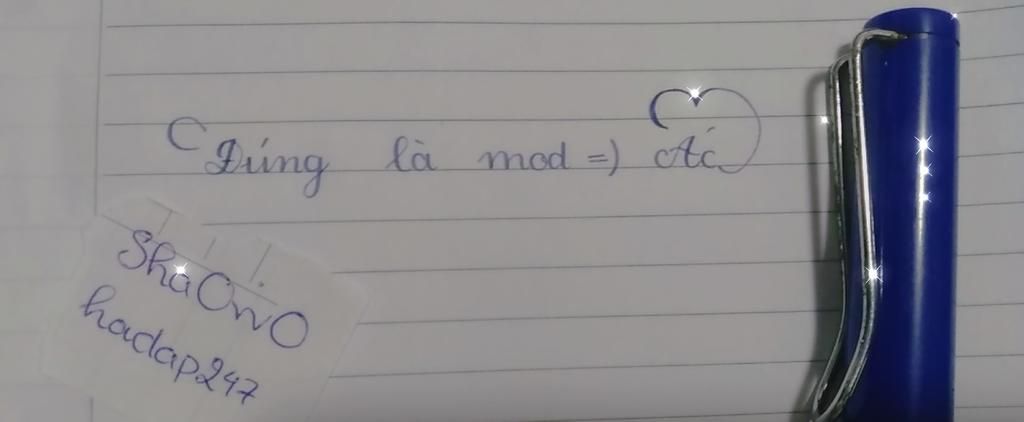 Đúng là mod =) Ác
ShaOwO
hadap247